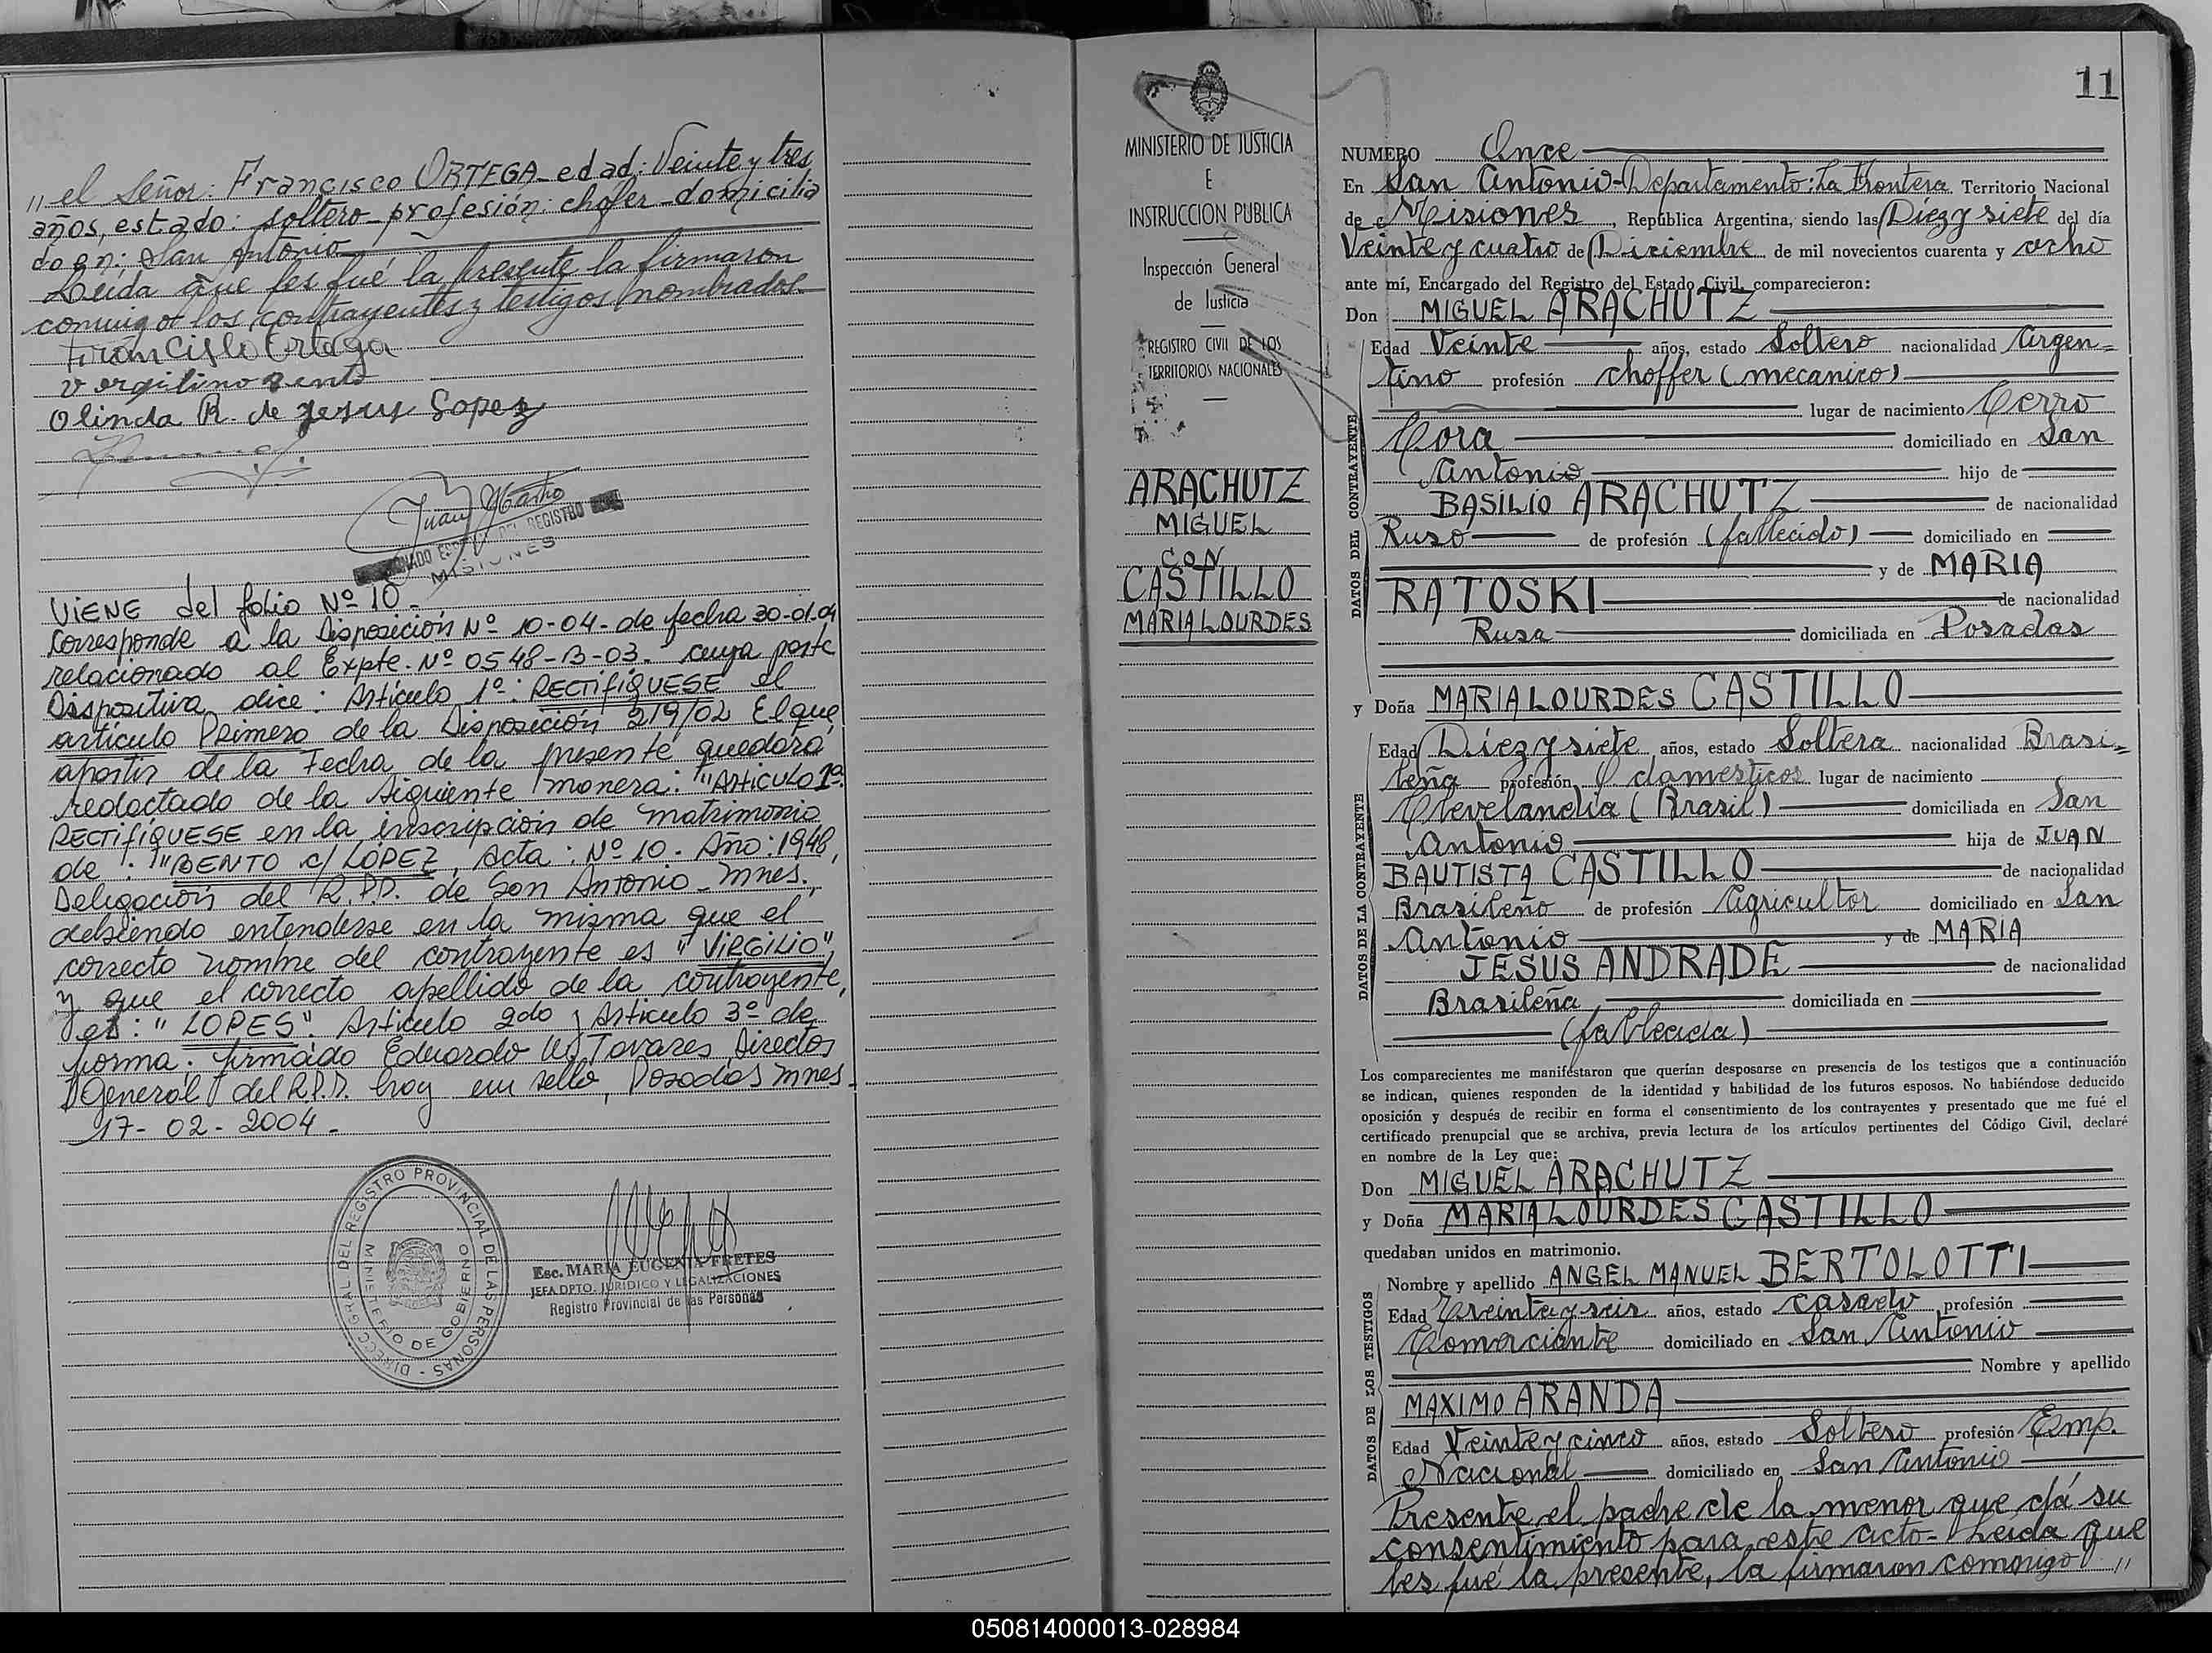 " el Señor: Francisco ORTEGA - edad: Veinte y tres
años, estado: soltero - profesión: chofer - domicilia
do en: San Antonio
Leida que les fué la presente la firmaron
conmigo los contrayentes y testigos nombrados
Francisco Ortega
vergilino Bento
Olinda R. de Jesus Lopez
Juan
MISIONES
VIENE del folio Nº 10 -
Corresponde a la Disposición Nº 10-04- de fecha 30-01-04
relacionado al Expte. Nº 0548-B-03. cuya parte
Dispositiva dice: Artículo 1º: RECTIFIQUESE el
artículo Primero de la Disposición 219/02 El que
apartir de la Fecha de la presente quedará
redactado de la siguiente manera: "Articulo 1º:
RECTIFIQUESE en la inscripción de matrimonio
de: "BENTO c/ LOPEZ, Acta: Nº 10. Año: 1948,
Delegación del R.P.P. de San Antonio - Mnes.,
debiendo entenderse en la misma que el
correcto nombre del contrayente es "VIRGILIO",
y que el correcto apellido de la contrayente,
es: "LOPES". Articulo 2do y Articulo 3º de
forma. firmado Eduardo W. Tavares Director
General del R.P.P. hay un sello, Posadas Mnes.
17-02-2004.-
DIRECC. GRAL DEL REGISTRO PROVINCIAL DE LAS PERSONAS -
MINISTERIO DE GOBIERNO
Esc. MARIA EUGENIA FRETES
JEFA DPTO. JURIDICO Y LEGALIZACIONES
Registro Provincial de las Personas
MINISTERIO DE JUSTICIA
E
INSTRUCCION PUBLICA
Inspección General
de Justicia
REGISTRO CIVIL DE LOS
TERRITORIOS NACIONALES
ARACHUTZ
MIGUEL
CON
CASTILLO
MARIA LOURDES
11
NUMERO Once
En San Antonio - Departamento: La Frontera Territorio Nacional
de Misiones, República Argentina, siendo las Diez y siete del día
Veinte y cuatro de Diciembre de mil novecientos cuarenta y ocho
ante mí, Encargado del Registro del Estado Civil, comparecieron:
Don MIGUEL ARACHUTZ
DATOS DEL CONTRAYENTE
Edad Veinte años, estado Soltero nacionalidad Argen=
tino profesión choffer (mecanico)
lugar de nacimiento Cerro
Cora domiciliado en San
Antonio hijo de
BASILIO ARACHUTZ de nacionalidad
Ruso de profesión (fallecido) domiciliado en
y de MARIA
RATOSKI de nacionalidad
Rusa domiciliada en Posadas
y Doña MARIA LOURDES CASTILLO
DATOS DE LA CONTRAYENTE
Edad Diez y siete años, estado Soltera nacionalidad Brasi=
leña profesión Q. domesticos lugar de nacimiento
Clevelandia (Brasil) domiciliada en San
Antonio hija de JUAN
BAUTISTA CASTILLO de nacionalidad
Brasileño de profesión Agricultor domiciliado en San
Antonio y de MARIA
JESUS ANDRADE de nacionalidad
Brasileña domiciliada en
(fallecida)
Los comparecientes me manifestaron que querían desposarse en presencia de los testigos que a continuación
se indican, quienes responden de la identidad y habilidad de los futuros esposos. No habiéndose deducido
oposición y después de recibir en forma el consentimiento de los contrayentes y presentado que me fué el
certificado prenupcial que se archiva, previa lectura de los artículos pertinentes del Código Civil, declaré
en nombre de la Ley que:
Don MIGUEL ARACHUTZ
y Doña MARIA LOURDES CASTILLO
quedaban unidos en matrimonio.
DATOS DE LOS TESTIGOS
Nombre y apellido ANGEL MANUEL BERTOLOTTI
Edad Treinta y seis años, estado casado profesión
Comerciante domiciliado en San Antonio
Nombre y apellido
MAXIMO ARANDA
Edad Veinte y cinco años, estado Soltero profesión Emp.
Nacional domiciliado en San Antonio
Presente el padre de la menor que dá su
consentimiento para este acto - Leida que
les fué la presente, la firmaron comnigo "
050814000013-028984